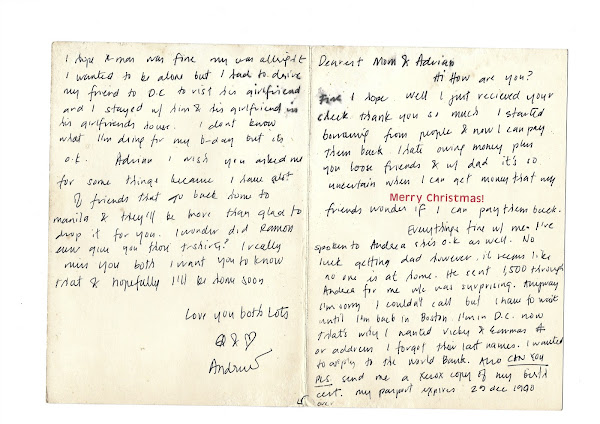 Dearest Mom & Adrian
Hi How are you?
Fine I hope. Well I just recieved your
check thank you so much. I started
borrowing from people & now I can pay
them back. I hate owing money plus
you loose friends & w/ dad it's so
uncertain when I can get money that my
Merry Christmas!
friends wonder if I can pay them back.
Everythings fine w/ me. I've
spoken to Andrea she's ok as well. No
luck getting dad however, it seems like
no one is at home. He sent 1,500 through
Andrea for me w/c was surprising. Anyway
I'm sorry I couldn't call but I have to wait
until I'm back in Boston. I'm in D.C. now
That's why I wanted Vicky & Emmas #
or address I forgot their last names. I wanted
to apply to the World Bank. Also CAN YOU
PLS. send me a xerox copy of my birth
cert. my passport expires 29 dec 1990
over
I hope xmas was fine my was allright
I wanted to be alone but I had to drive
my friend to D.C to vist his girlfriend
and I stayed w/ him & his girlfriend in
his girlfriends house. I dont know
what I'm doing for my b-day but its
o.k. Adrian I wish you asked me
for some things because I have alot
of friends that go back home to
manila & they'll be more than glad to
drop it for you. I wonder did Ramon
ever give you those t-shirts? I really
miss you both I want you to know
that & hopefully I'll be home soon
Love you both Lots
&
Andrew